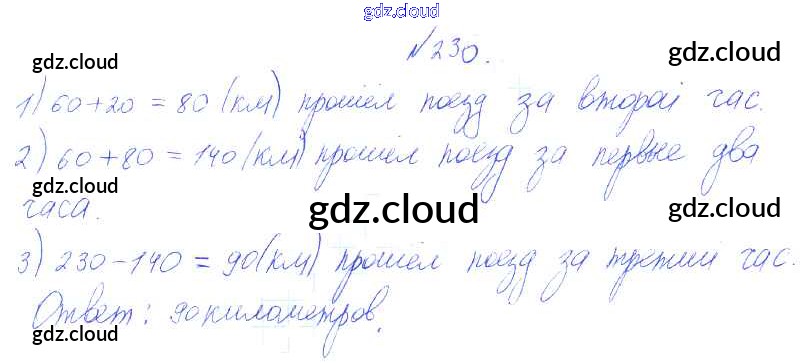 gdz.cloud
№230.
gdz.cloud gdz.cloud
1) 60+20 = 80 (км) прошёл поезд за второй час.
2) 60+80 = 140 (км) прошёл поезд за первые два
gdz.cloud gdz.cloud gdz.cloud
часа.
3) 230-140 = 90 (км) прошёл поезд за третий час.
Ответ: 90 километров.
gdz.cloud gdz.cloud gdz.cloud